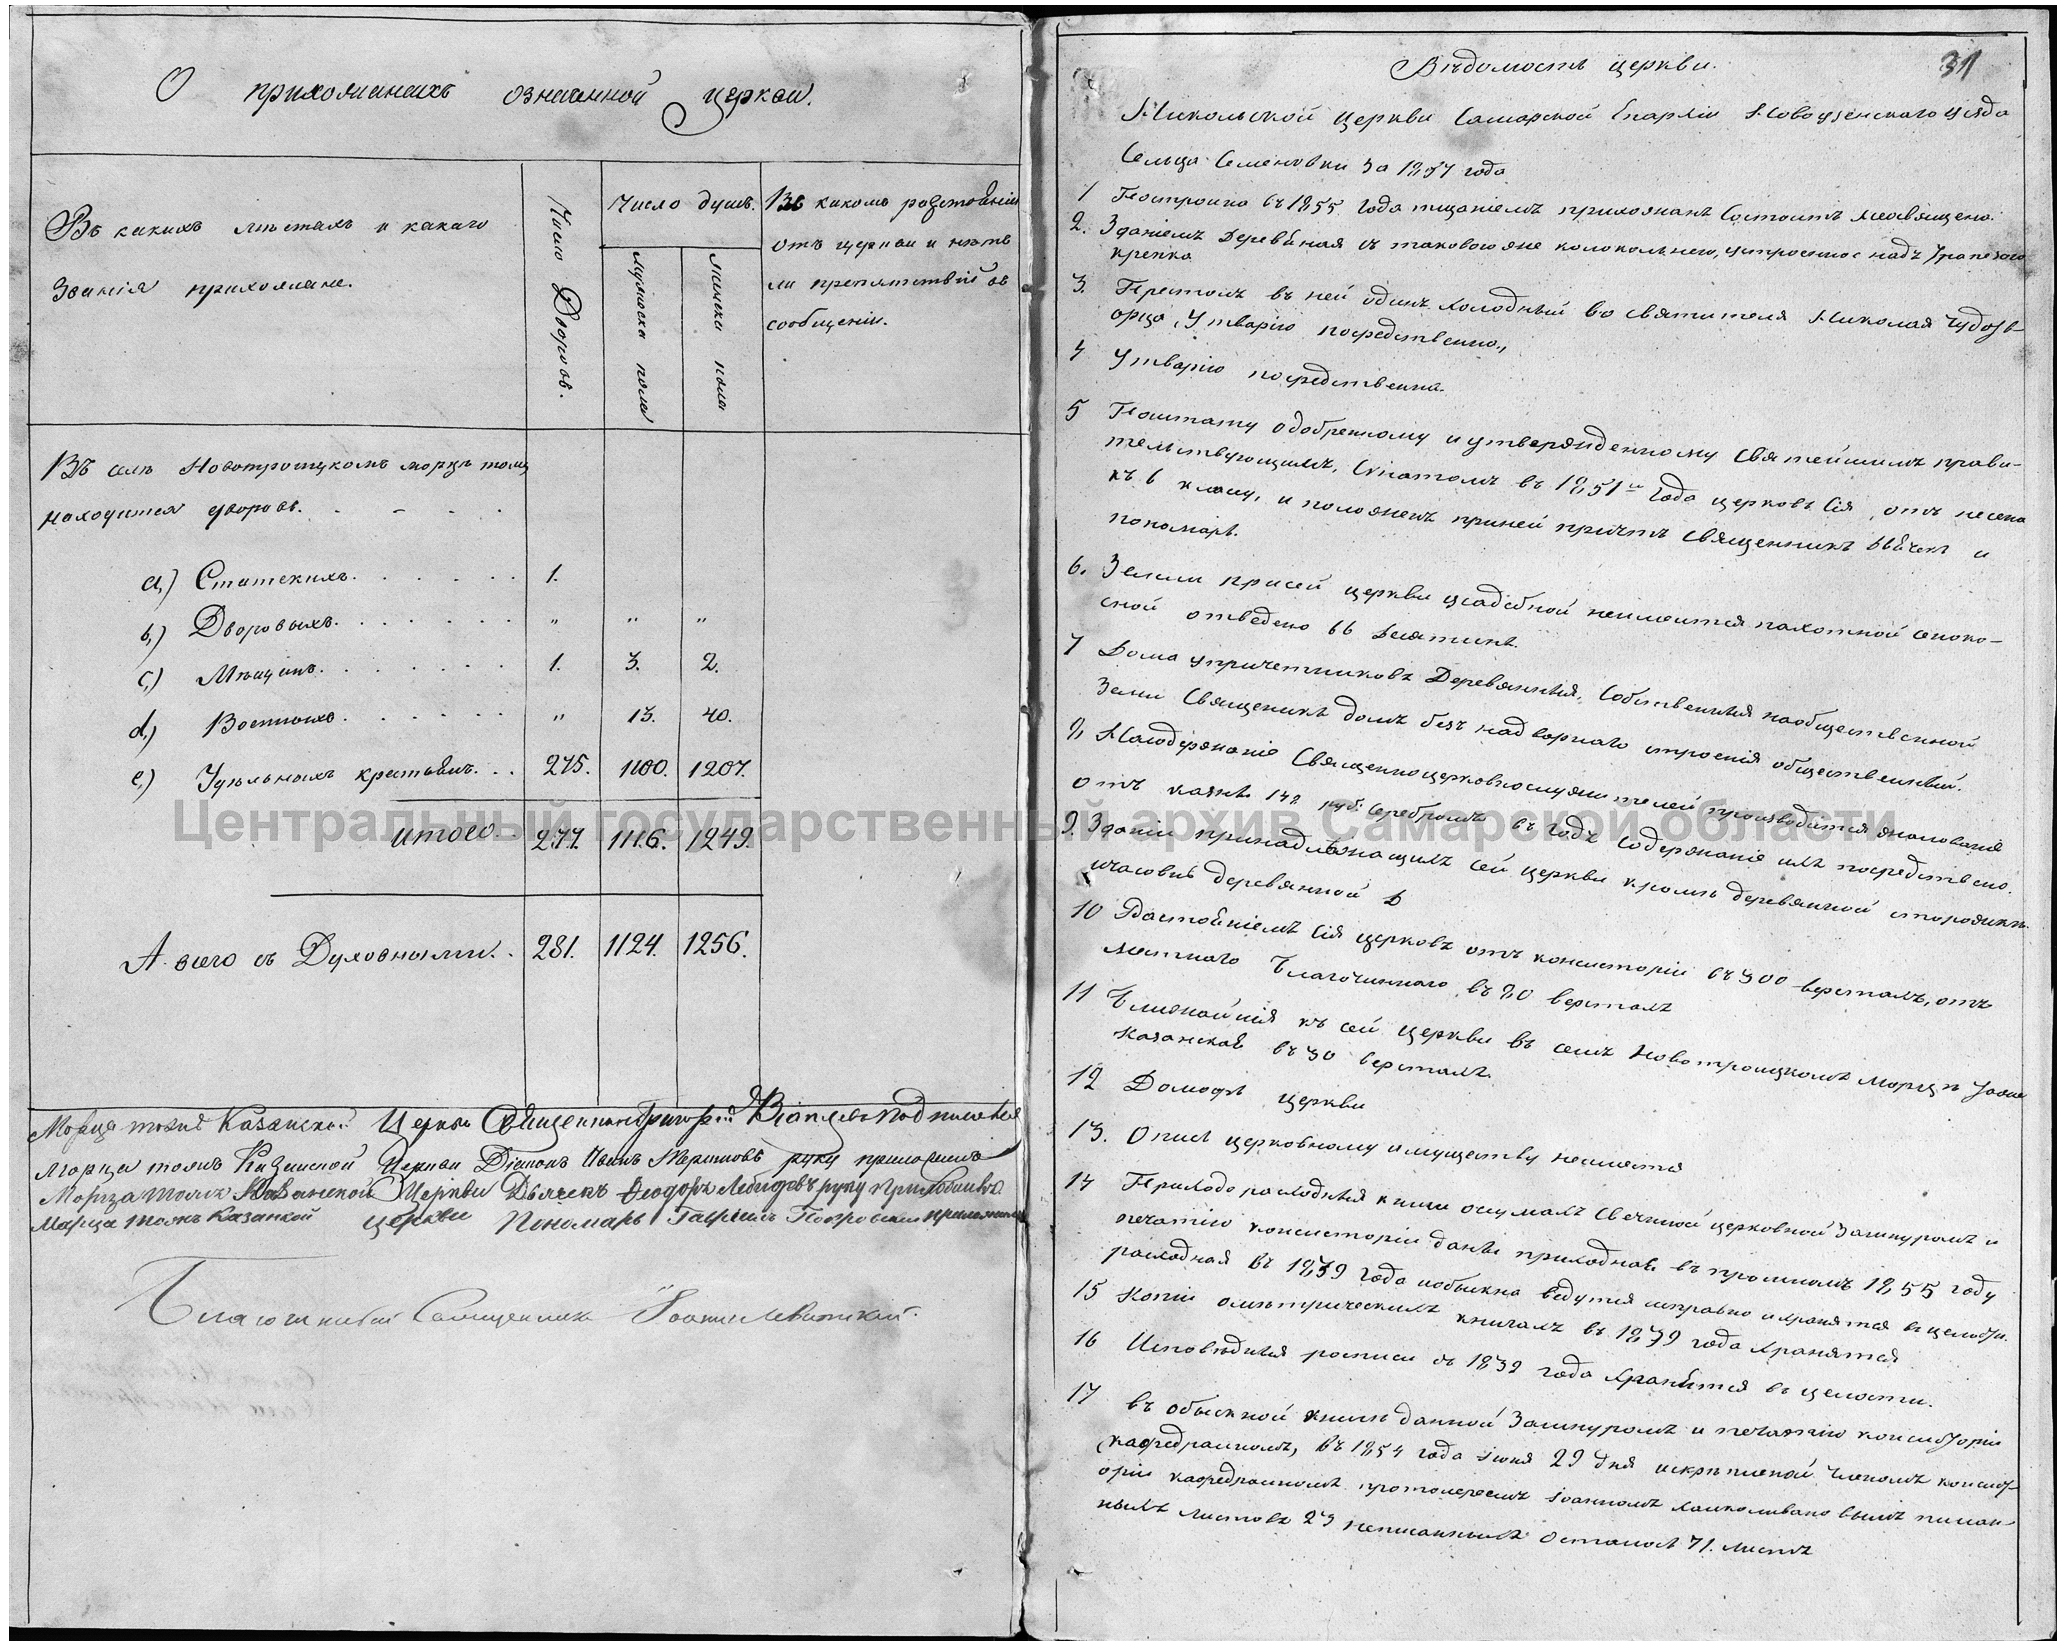 О прихожанахъ означенной церкви.
Въ какихъ местахъ и какаго
званiя прихожане.
Число Дворовъ.
Число душъ.
мужеска пола
женска пола
Въ какомъ разстоянiи
отъ церкви и нетъ
ли препятствiй въ
сообщенiи.
Въ селе Новотроицкомъ морца тожъ
находится дворовъ.
a,) Статскихъ. 1.
b,) Дворовыхъ. " " "
c,) Мещанъ. 1. 3. 2.
d,) Военныхъ. " 13. 40.
e,) Удельныхъ крестьянъ. 275. 1100. 1207.
Итого. 277. 1116. 1249.
А всего съ Духовными. 281. 1124. 1256.
Морца тожъ Казанской Церкви Священникъ Григорiй подписался
Морца тожъ Казанской Церкви Дiаконъ Иванъ Мартыновъ руку приложилъ
Морца тожъ Казанской Церкви Дьячекъ Феодоръ Лебедевъ руку приложилъ
Морца тожъ Казанской церкви Пономарь Гаврiилъ Покровскiй приложилъ
Благочинный Священникъ Iоаннъ Левитскiй.
31
Ведомость церкви.
Никольской церкви Самарской Епархiи Новоузенскаго уезда
Сельца Семеновки за 1857 года
1 Построина въ 1855 года тщанiемъ прихожанъ Состоитъ неосвящено.
2. Зданiемъ Деревяная съ таковою же колокольнею, устроенною надъ Трапезою
крепка
3. Престолъ въ ней одинъ холодный во святителя Николая Чудотв-
орца, Утварiю посредственно,
4 Утварiю посредственна.
5 Поштату одобренному и утвержденному Святейшимъ прави-
тельствующимъ, Сунодомъ въ 1851м года церковь Сiя, отнесена
къ 6 класу, и положенъ приней причтъ Священникъ дьячекъ и
пономарь.
6. Земли присей церкви усадебной неимеится пахотной сеноко-
сной отведено 66 Десятинъ.
7 Дома упричетниковъ Деревянныя, Собственныя наобщественной
земли Священникъ домъ безъ надворнаго строенiя общественный.
8, Насодержанiе Священноцерковнослужителей производится жалованiе
отъ казны 142 руб. серебромъ въ годъ Содержанiе ихъ посредствено.
9. Зданiи принадлежащихъ сей церкви кроме деревянной сторожки
ичасовне деревянной
10 Разстоянiемъ Сiя церковь отъ консисторiи въ 300 верстахъ, отъ
местнаго Благочиннаго въ 80 верстахъ
11 Ближайшiя къ сей церкви въ селе Новотроицкомъ Морце тожъ
Казанская въ 30 верстахъ.
12 Домофъ церкви
13. Описи церковному имуществу неимеется
14 Приходо расходныя книги осумахъ Свечной церковной Зашнуромъ и
печатiю консисторiи даны приходная въ прошломъ 1855 году
расходная въ 1839 года собыкна ведутся исправно ихранятся вцелости.
15 Копiи сметрическихъ книгахъ въ 1839 года хранятся
16 Исповедныя росписи съ 1839 года хранятся въ целости.
17 въ обыскной книге данной Зашнуромъ и печатiю консисторiи
кафедралномъ, въ 1854 года iюня 29 дня искрепленой членомъ консист-
орiи кафедралномъ протоиереемъ Iоанномъ писан-
ныхъ листовъ 29 неписанныхъ осталось 71. листъ
Центральный государственный архив Самарской области